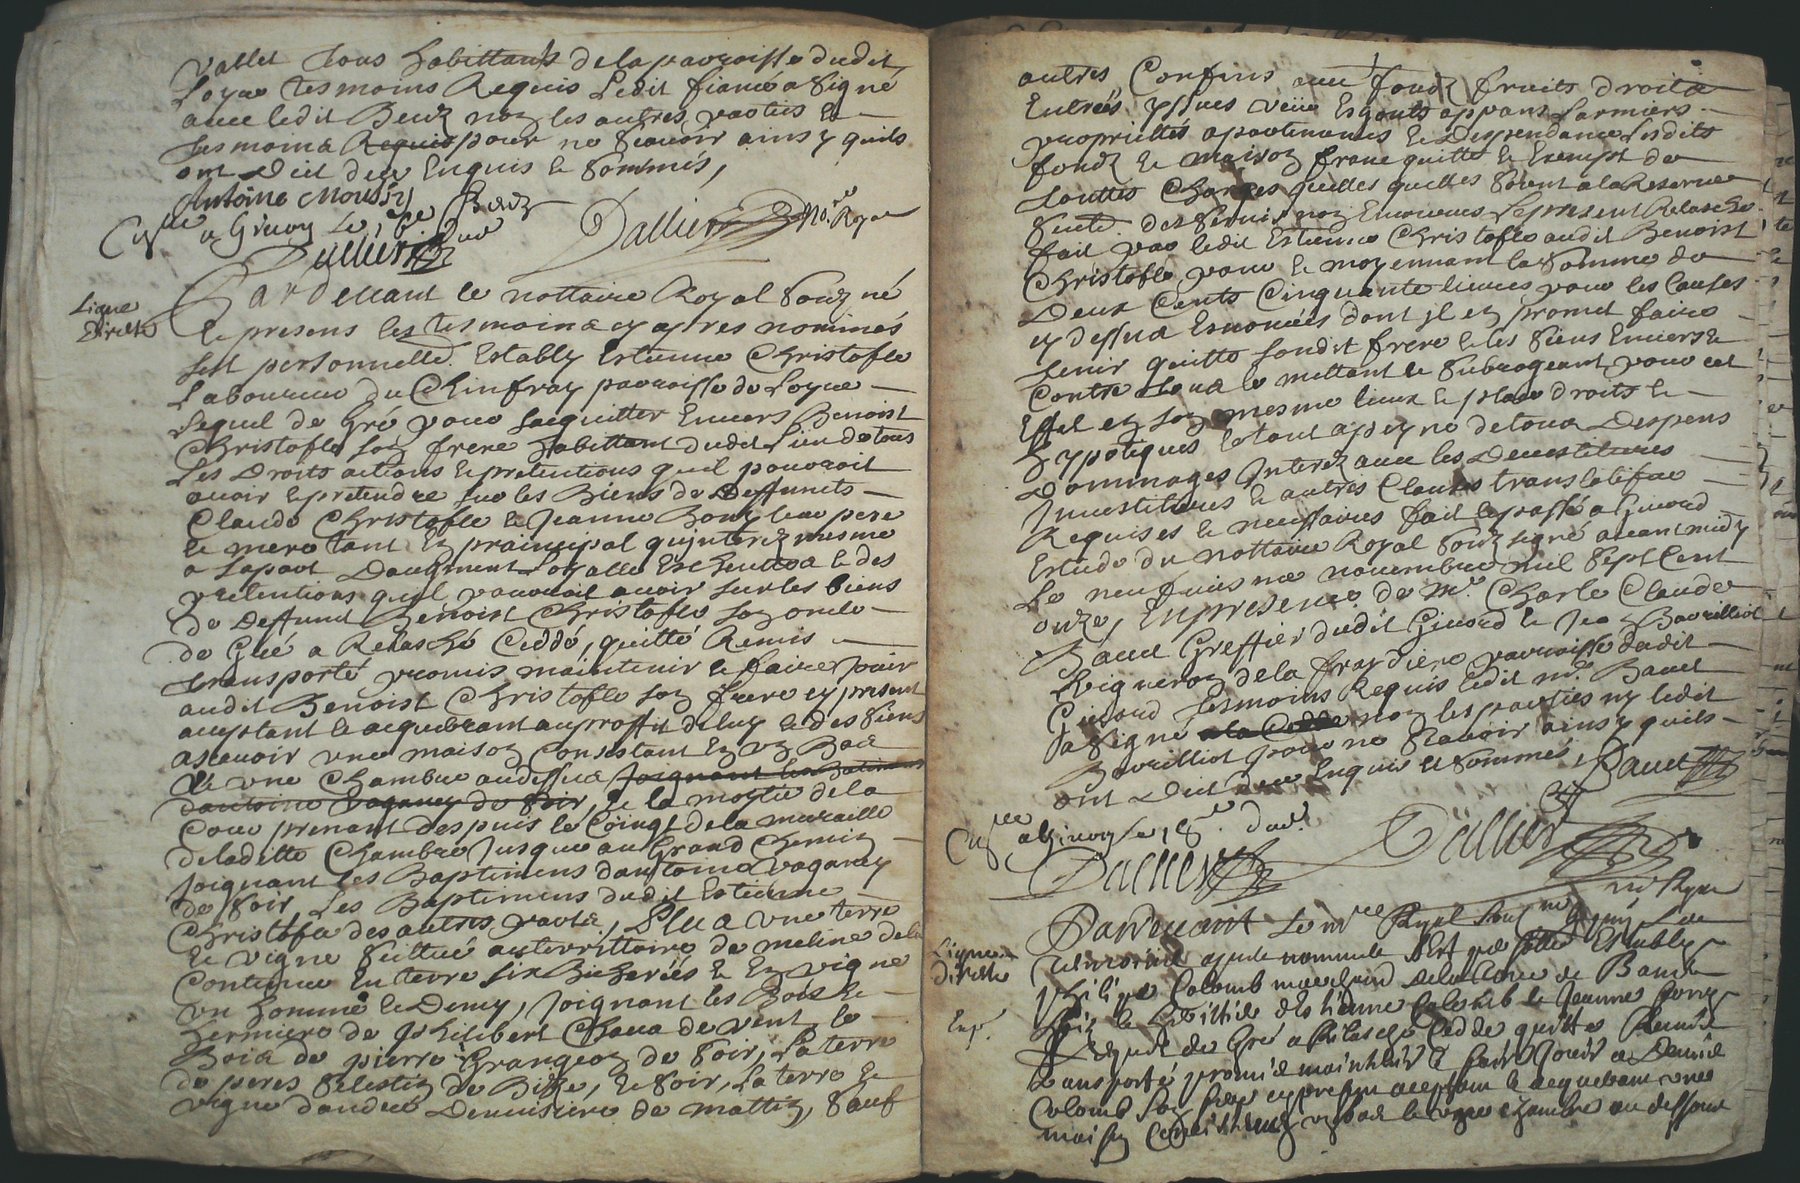 vallet tous habittants de la parroisse dudit
Loyre tesmoins Requis Ledit fiancé a signé
avec ledit Benz non les autres parties et
tesmoins Requis pour ne scavoir ainsy quils
ont dict deu Enquis et sommés,
Antoine Moussy
Dallier No.re Royal
Pardevant le nottaire Royal soubzné
Ligne
Directe
et presens les tesmoins cy apres nommés
sest personnelle.t Estably Estienne Christofle
Laboureur du Chinfray parroisse de Loyre
Lequel de Gré pour sacquitter Envers Benoist
Christofle son frere habittant dudit Lieu de tous
Les Droits actions et pretentions quil pouvroit
avoir et pretendre sur les Biens de Deffunts
Claude Christofle et Jeanne Bony leur pere
et mere tant En prainsipal quinterez mesme
a sa part Daugment
pretentions quil pouvroit avoir sur les biens
de Deffunt Benoist Christofle son oncle
de Gré a Relasché Ceddé, quitté Remis
transporté promis maintenir et faire Jouir
audit Benoist Christofle son frere cy present
aceptant et acquerant au proffit de luy et des siens
ascavoir une maison Consistant En un Bas
et une Chambre audessus Joignant les Batimens
dantoine Vaganey de soir, et la moytié de la
Cour prenant despuis le Coingt de la muraille
de laditte Chambre Jusques au Grand Chemin
Joignant Les Baptimens dantoine Vaganey
de soir, Les Baptimens dudit Estienne
Christofle des autres parts, Plus une terre
et vigne scittué au territtoire de moline de la
Contenue En terre six Bicherées et En vigne
un homme et Demy, Joignant les Bois et
hermiere de Philibert Chava de vent, le
Bois de pierre Grangeon de soir, La terre
de peres Celestin de Bize, et soir, La terre et
vigne dandré Demisiere de mattin, sauf
autres Confins avec fondz fruits droits
Entrées yssues veüe Esgouts appans Larmiers
proprietés apartenances et Despendances desdits
fondz et maison franc quitte et Exempt de
touttes Charges quelles quelles soient a la Reserve
des servis non Encourus Le present Relasche
fait par ledit Estienne Christofle audit Benoist
Christofle pour et moyennant la somme de
Deux Cents Cinquante livres pour les Causes
cy dessus Enoncées dont Il En promet faire
tenir quitte sondit frere et les siens Envers et
Contre tous le mettant et subrogeant pour cet
Effet En son mesme lieux et place droits et
hypotiques Estant a peyne de tous Despens
Dommages Interez avec les Devestitures
Investitures et autres Clauses translatifves
Requises et necessaires fait et passé a Givord
Estude du nottaire Royal soubzsigné avant midy
Le neufviesme novembre mil sept Cent
onze, En presence de Mr. Charle Claude
Baud Greffier dudit Givord et Jean Bavrilliot
Vigneron de la frardiere parroisse dudit
Givord tesmoins Requis ledit mr. Baud
a signé non les parties ny ledit
Bavrilliot pour ne scavoir ainsy quils
ont Dict deue Enquis et sommés,
Dallier
Dallier
No. Royal
Ligne
directe
Pardevant Le no.re Royal
tesmoins apres nommés sest Estably
Philipe Colomb marchand
Estienne Colomb et Jeanne
Lequel de Gré a Relasché Cedde quitte Remis
transporté promis maintenir et faire Jouir a Denis
Colomb son frere cy present aceptant et acquerant une
maison Consistant un bas et une chambre au dessus